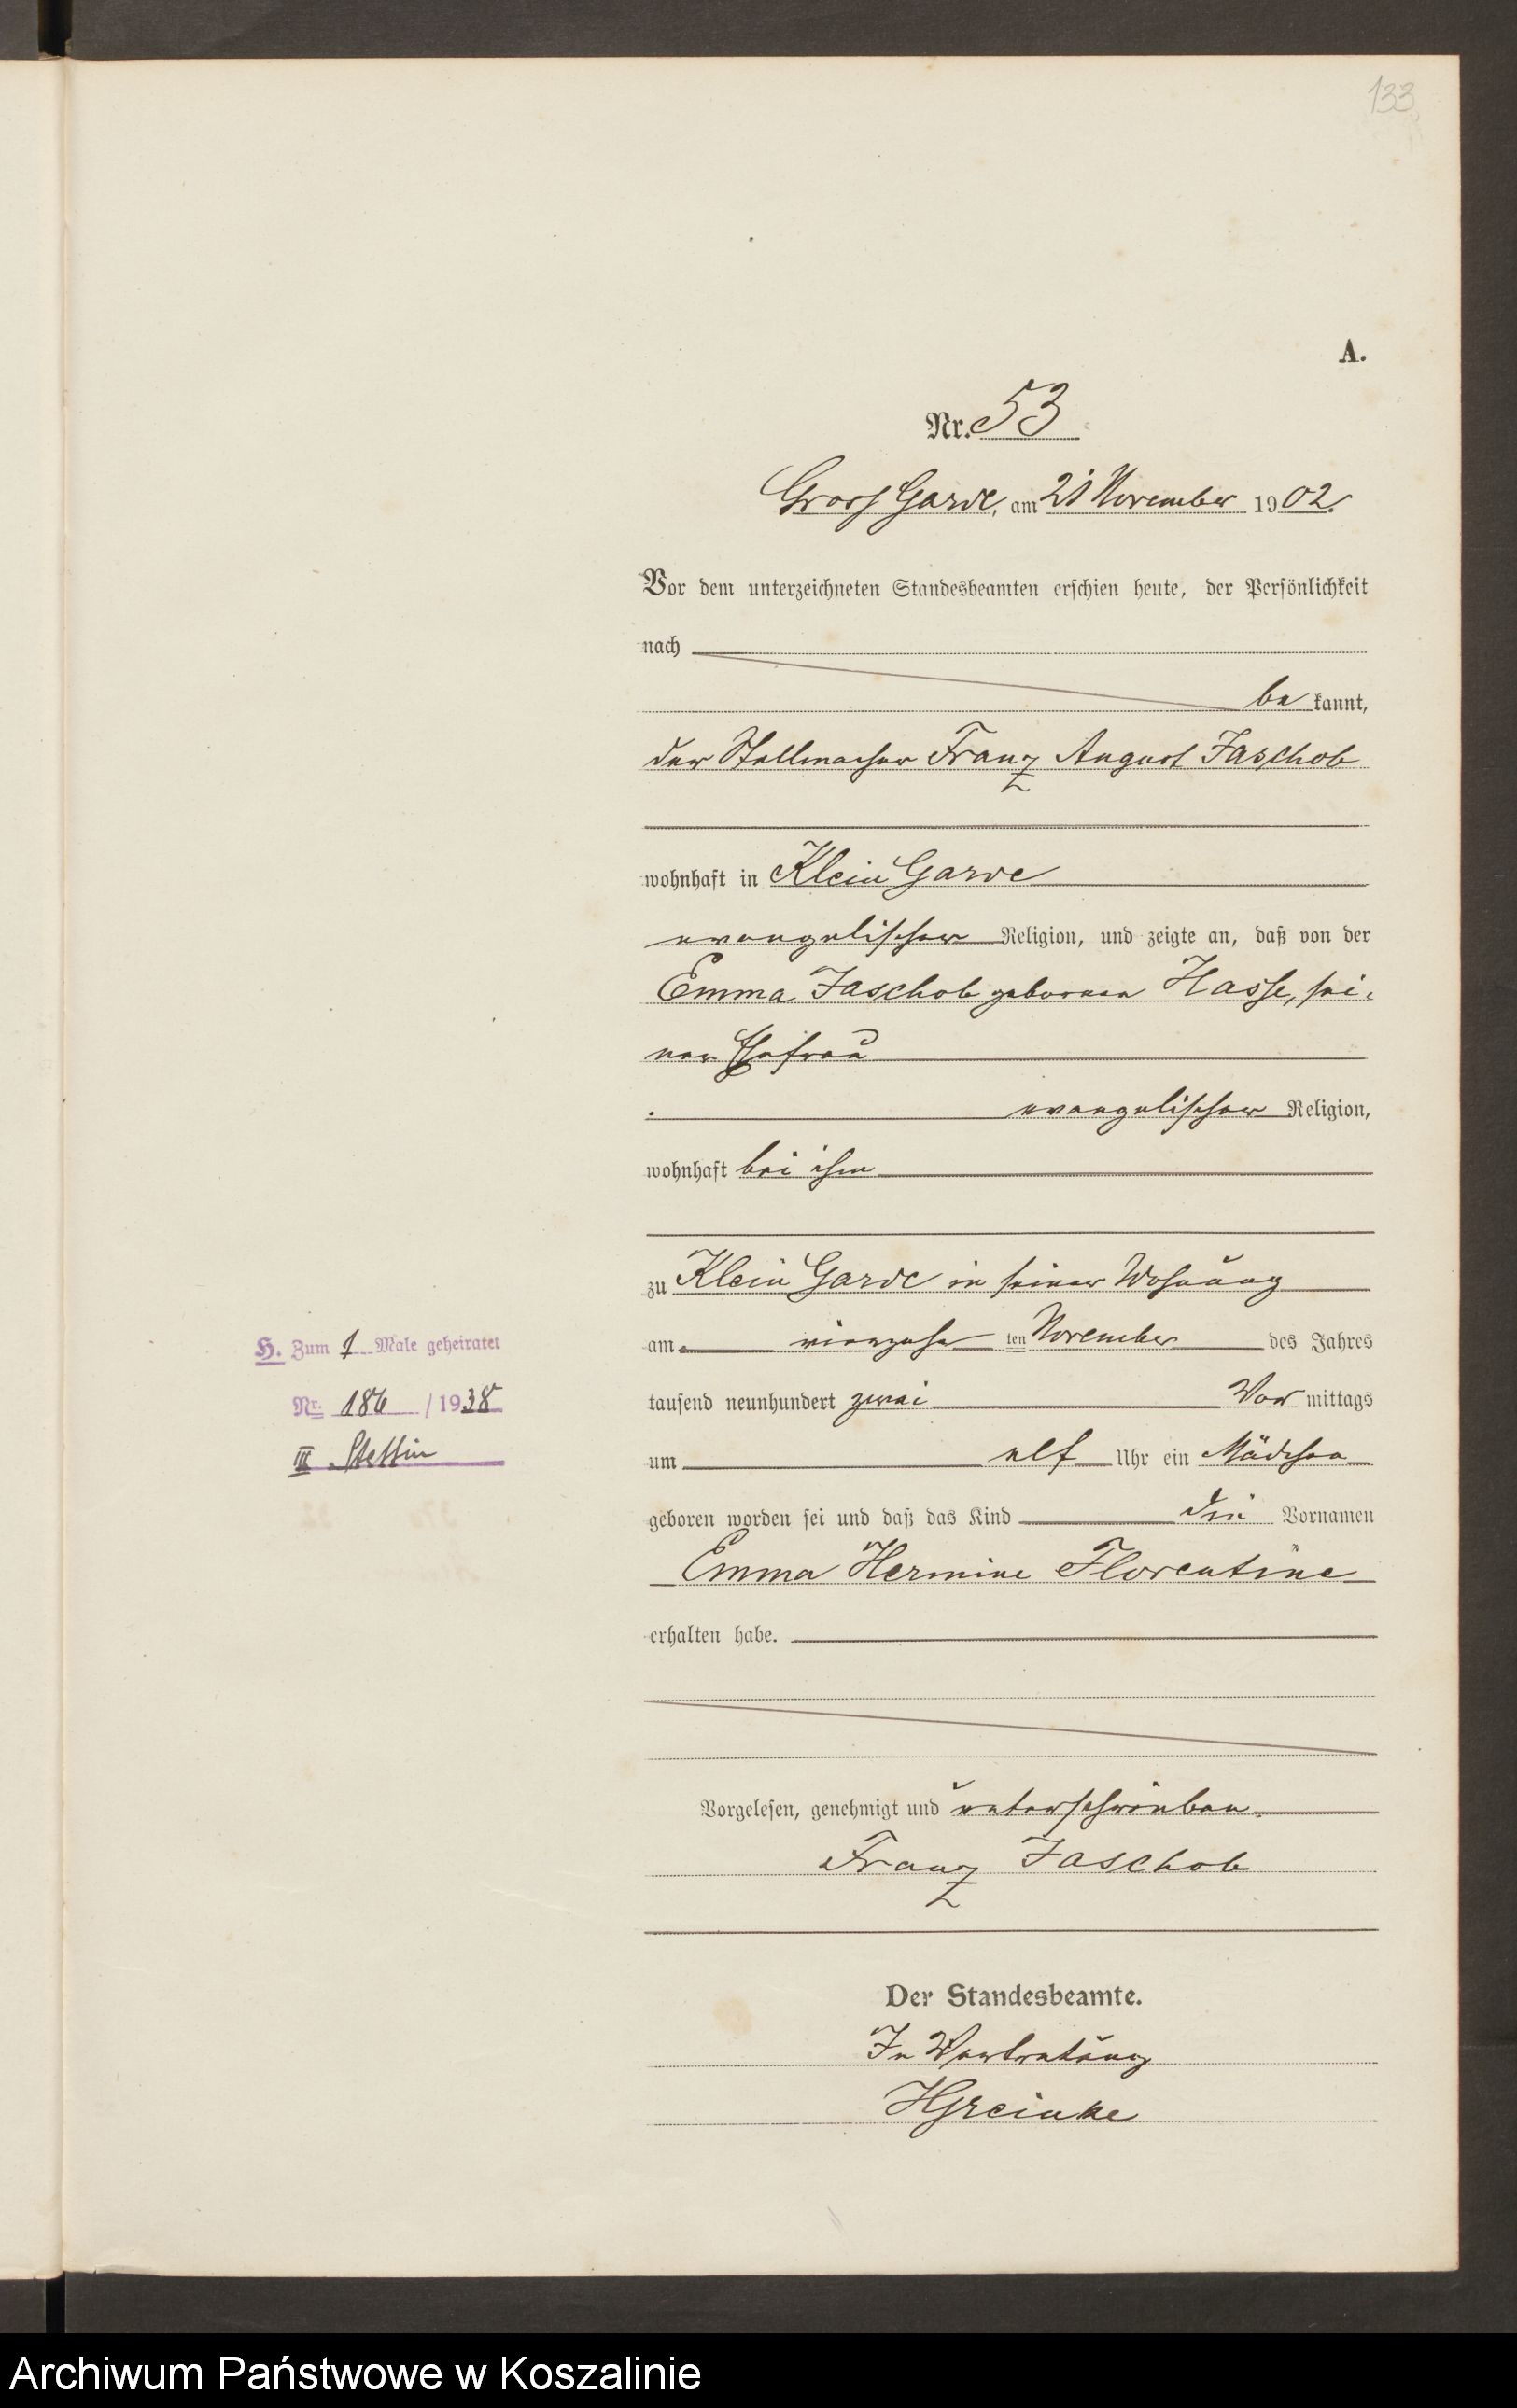 133
A.
Nr. 53
Gross Garde, am 21 November 1902.
Vor dem unterzeichneten Standesbeamten erschien heute, der Persönlichkeit
nach
be kannt,
der Stellmacher Franz August Jaschob
wohnhaft in Klein Garde
evangelischer Religion, und zeigte an, daß von der
Emma Jaschob geborenen Hasse, sei-
ner Ehefrau
evangelischer Religion,
wohnhaft bei ihm
zu Klein Garde in seiner Wohnung
am vierzehn ten November des Jahres
tausend neunhundert zwei Vor mittags
um elf Uhr ein Mädchen
geboren worden sei und daß das Kind die Vornamen
Emma Hermine Florentine
erhalten habe.
H. Zum 1 Male geheiratet
Nr. 186 / 1938
III Stettin
Vorgelesen, genehmigt und unterschrieben.
Franz Jaschob
Der Standesbeamte.
In Vertretung
HGreinke
Archiwum Państwowe w Koszalinie